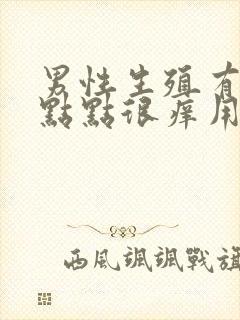 男性生殖有
點點很痒用
西風颯颯戰旗